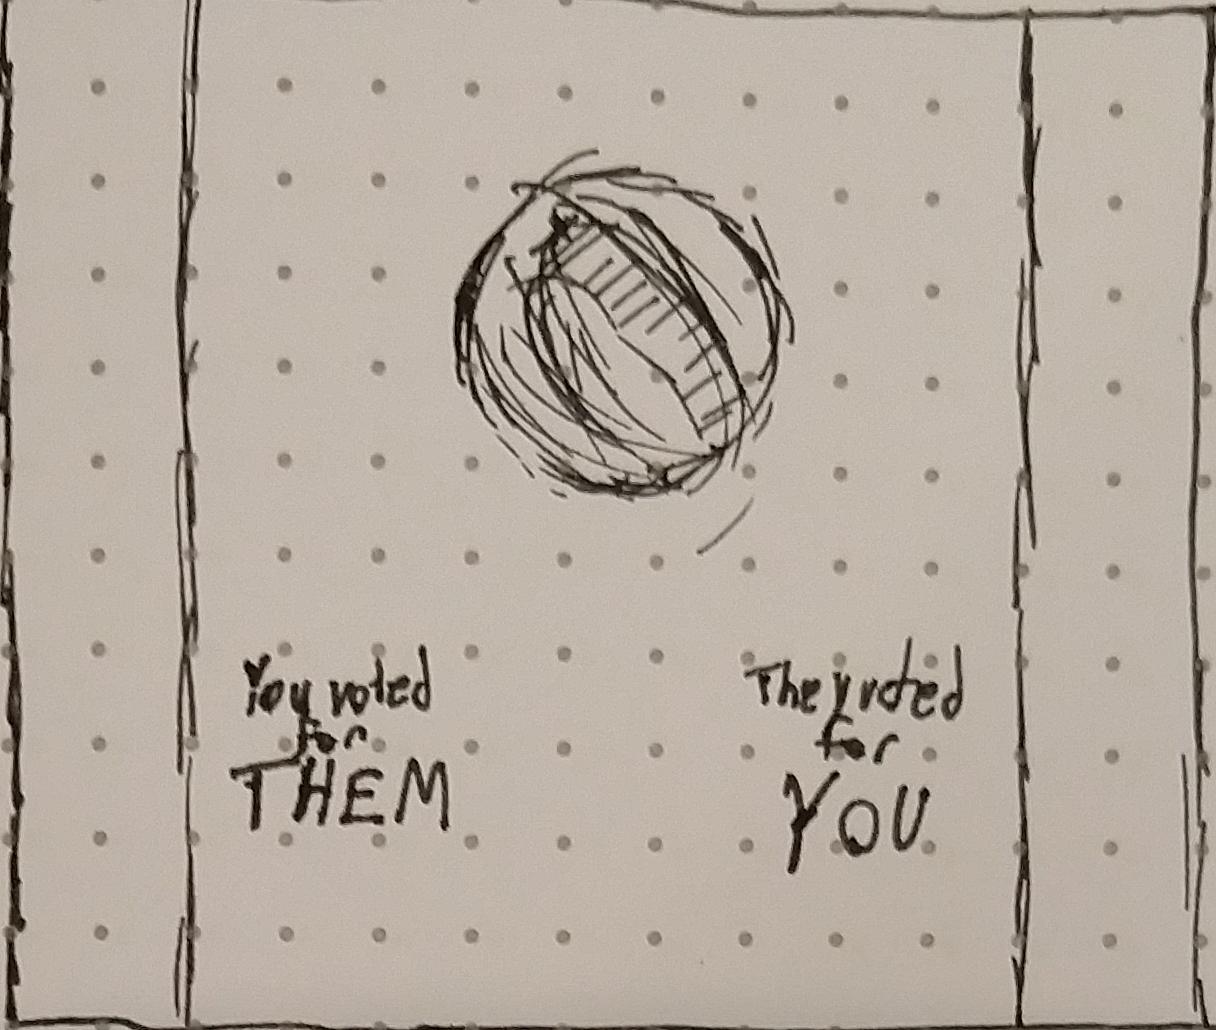 You voted
for
THEM
They voted
for
YOU